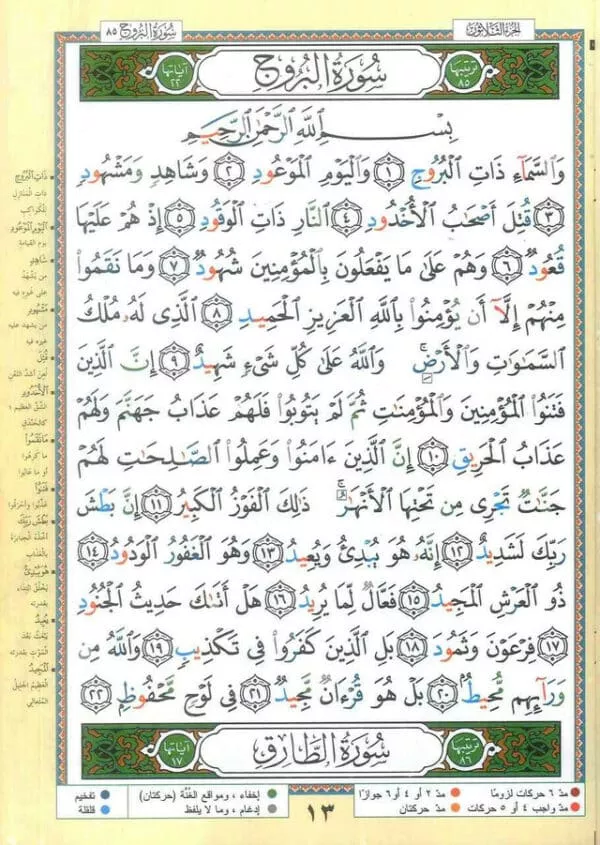 الجزء الثلاثون
سورة البروج ٨٥
ترتيبها ٨٥
سُورَةُ البُرُوجِ
آياتها ٢٢
بِسْمِ ٱللَّهِ ٱلرَّحْمَٰنِ ٱلرَّحِيمِ
وَٱلسَّمَآءِ ذَاتِ ٱلْبُرُوجِ ١ وَٱلْيَوْمِ ٱلْمَوْعُودِ ٢ وَشَاهِدٍ وَمَشْهُودٍ
٣ قُتِلَ أَصْحَٰبُ ٱلْأُخْدُودِ ٤ ٱلنَّارِ ذَاتِ ٱلْوَقُودِ ٥ إِذْ هُمْ عَلَيْهَا
قُعُودٌ ٦ وَهُمْ عَلَىٰ مَا يَفْعَلُونَ بِٱلْمُؤْمِنِينَ شُهُودٌ ٧ وَمَا نَقَمُوا۟
مِنْهُمْ إِلَّآ أَن يُؤْمِنُوا۟ بِٱللَّهِ ٱلْعَزِيزِ ٱلْحَمِيدِ ٨ ٱلَّذِى لَهُۥ مُلْكُ
ٱلسَّمَٰوَٰتِ وَٱلْأَرْضِ ۚ وَٱللَّهُ عَلَىٰ كُلِّ شَىْءٍ شَهِيدٌ ٩ إِنَّ ٱلَّذِينَ
فَتَنُوا۟ ٱلْمُؤْمِنِينَ وَٱلْمُؤْمِنَٰتِ ثُمَّ لَمْ يَتُوبُوا۟ فَلَهُمْ عَذَابُ جَهَنَّمَ وَلَهُمْ
عَذَابُ ٱلْحَرِيقِ ١٠ إِنَّ ٱلَّذِينَ ءَامَنُوا۟ وَعَمِلُوا۟ ٱلصَّٰلِحَٰتِ لَهُمْ
جَنَّٰتٌ تَجْرِى مِن تَحْتِهَا ٱلْأَنْهَٰرُ ۚ ذَٰلِكَ ٱلْفَوْزُ ٱلْكَبِيرُ ١١ إِنَّ بَطْشَ
رَبِّكَ لَشَدِيدٌ ١٢ إِنَّهُۥ هُوَ يُبْدِئُ وَيُعِيدُ ١٣ وَهُوَ ٱلْغَفُورُ ٱلْوَدُودُ ١٤
ذُو ٱلْعَرْشِ ٱلْمَجِيدُ ١٥ فَعَّالٌ لِّمَا يُرِيدُ ١٦ هَلْ أَتَىٰكَ حَدِيثُ ٱلْجُنُودِ
١٧ فِرْعَوْنَ وَثَمُودَ ١٨ بَلِ ٱلَّذِينَ كَفَرُوا۟ فِى تَكْذِيبٍ ١٩ وَٱللَّهُ مِن
وَرَآئِهِم مُّحِيطٌۢ ٢٠ بَلْ هُوَ قُرْءَانٌ مَّجِيدٌ ٢١ فِى لَوْحٍ مَّحْفُوظٍۭ ٢٢
ترتيبها ٨٦
سُورَةُ الطَّارِقِ
آياتها ١٧
ذَاتِ ٱلْبُرُوجِ
ذات المنازل
للكواكب
ٱلْيَوْمِ ٱلْمَوْعُودِ
يوم القيامة
شَاهِدٍ
من يشهد
على غيره فيه
مَشْهُودٍ
من يشهد عليه
غيره فيه
قُتِلَ
لعن أشد اللعن
ٱلْأُخْدُودِ
الشق العظيم ؛
كالخندق
مَا نَقَمُوا۟
ما كرهوا
أو ما عابوا
فَتَنُوا۟
عذبوا وأحرقوا
بَطْشَ رَبِّكَ
أخذه الجبابرة
بالعذاب
هُوَ يُبْدِئُ
يخلق ابتداء
بقدرته
يُعِيدُ
يبعث بعد
الموت بقدرته
ٱلْمَجِيدُ
العظيم الجليل
المتعالي
مدّ ٦ حركات لزوماً
مدّ ٢ أو ٤ أو ٦ جوازاً
إخفاء ، ومواقع الغُنَّة (حركتان)
تفخيم
مدّ واجب ٤ أو ٥ حركات
مدّ حركتان
إدغام ، وما لا يلفظ
قلقلة
١٣